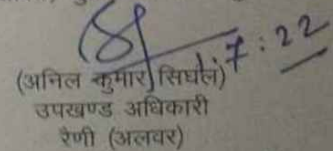 7:22
(अनिल कुमार सिघंल)
उपखण्ड अधिकारी
रैणी (अलवर)